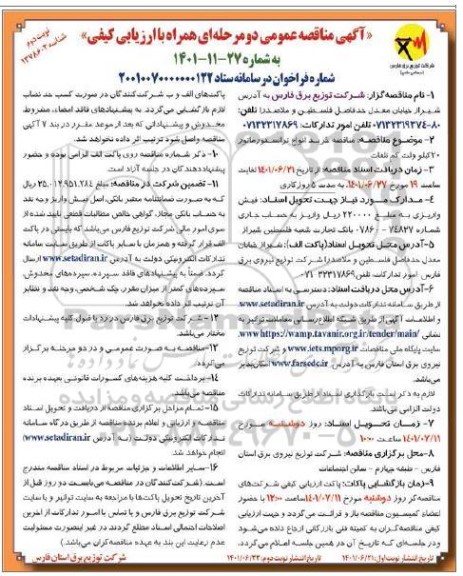 نوبت دوم
شناسه ۱۳۷۸۶۰۳
«آگهی مناقصه عمومی دو مرحله‌ای همراه با ارزیابی کیفی»
به شماره ۲۷-۱۱-۱۴۰۱
شماره فراخوان در سامانه ستاد ۲۰۰۱۰۰۷۰۰۰۰۰۰۱۲۲
شرکت توزیع برق فارس
۱- نام مناقصه‌گزار: شرکت توزیع برق فارس به آدرس
شیراز خیابان معدل حدفاصل فلسطین و ملاصدرا تلفن:
۸۰-۰۷۱۳۲۳۱۹۳۷۴ تلفن امور تدارکات: ۰۷۱۳۲۳۱۷۸۶۹
۲- موضوع مناقصه: مناقصه خرید انواع ترانسفورماتور
۲۰ کیلو ولت کم تلفات
۳- زمان دریافت اسناد مناقصه: از تاریخ ۱۴۰۱/۰۶/۲۱ لغایت
ساعت ۱۹ مورخ ۱۴۰۱/۰۶/۲۷ به مدت ۵ روز کاری
۴- مدارک مورد نیاز جهت تحویل اسناد: فیش
واریزی به مبلغ ۲۲۰۰۰۰ ریال واریز به حساب جاری
شماره ۷۴۸۳۷ - ۰۷۸۶ بانک تجارت شعبه فلسطین شیراز
۵- آدرس محل تحویل اسناد (پاکت الف): شیراز خیابان
معدل حدفاصل فلسطین و ملاصدرا شرکت توزیع نیروی برق
فارس امور تدارکات، تلفن ۳۲۳۱۷۸۶۹-۰۷۱
۶- آدرس محل دریافت اسناد: دسترسی به اسناد مناقصه
از طریق سامانه تدارکات دولت به آدرس www.setadiran.ir
و اطلاعات آگهی از طریق شبکه اطلاع‌رسانی معاملات توانیر به
نشانی https://wamp.tavanir.org.ir/tender/main/
سایت پایگاه ملی مناقصات www.iets.mporg.ir و شرکت توزیع
نیروی برق استان فارس به آدرس www.farsedc.ir امکان‌پذیر
می‌باشد.
لازم به ذکر است بارگذاری اسناد از طریق سامانه تدارکات
دولت الزامی می باشد
۷- زمان تحویل اسناد: روز دوشنبه مورخ
۱۴۰۱/۰۷/۱۱ ساعت ۱۰:۰۰
۸- محل برگزاری مناقصه: شرکت توزیع نیروی برق استان
فارس - طبقه چهارم - سالن اجتماعات
۹- زمان بازگشایی پاکات: پاکت ارزیابی کیفی شرکت‌های
مناقصه‌گر روز دوشنبه مورخ ۱۴۰۱/۰۷/۱۱ ساعت ۱۰ با حضور
اعضاء کمیسیون مناقصه باز و قرائت می‌گردد و جهت ارزیابی
کیفی مناقصه‌گران به کمیته فنی بازرگانی ارجاع داده می‌شود
و در جلسه‌ای که تاریخ آن در همین جلسه اعلام می‌گردد،
پاکت‌های الف و ب شرکت‌کنندگان در صورت کسب حد نصاب
لازم بازگشایی می‌گردد. به پیشنهادهای فاقد امضاء، مشروط،
مخدوش و پیشنهاداتی که بعد از موعد مقرر در بند ۷ آگهی
مناقصه واصل شود ترتیب اثر داده نخواهد شد.
۱۰- ذکر شماره مناقصه روی پاکت الف الزامی بوده و حضور
پیشنهاددهندگان در جلسه آزاد است.
۱۱- تضمین شرکت در مناقصه: مبلغ ۲۵،۰۱۲،۹۵۱،۲۸۴ ریال
که به صورت ضمانتنامه معتبر بانکی، اصل فیش واریز وجه نقد
به حساب بانکی مجاز، گواهی خالص مطالبات قطعی تایید شده از
سوی امور مالی شرکت توزیع فارس می‌باشد که بایستی در پاکت
الف قرار گرفته و همزمان با سایر پاکات از طریق سایت سامانه
تدارکات الکترونیکی دولت به آدرس www.setadiran.ir ارسال
گردد. ضمناً به پیشنهادهای فاقد سپرده، سپرده‌های مخدوش،
سپرده‌های کمتر از میزان مقرر، چک شخصی، وجه نقد و نظایر
آن ترتیب اثر داده نخواهد شد.
۱۲- شرکت توزیع برق فارس در رد یا قبول کلیه پیشنهادات
مختار می‌باشد.
۱۳- مناقصه به صورت عمومی و در دو مرحله برگزار
می‌گردد.
۱۴- پرداخت کلیه هزینه‌های کسورات قانونی بعهده برنده
مناقصه می‌باشد.
۱۵- تمام مراحل برگزاری مناقصه از دریافت و تحویل اسناد
مناقصه و ارزیابی و اعلام برنده مناقصه از طریق درگاه سامانه
تدارکات الکترونیکی دولت (به آدرس www.setadiran.ir)
انجام خواهد شد.
۱۶- سایر اطلاعات و جزئیات مربوط در اسناد مناقصه مندرج
است. (شرکت‌کنندگان در مناقصه می‌بایست دو روز قبل از
آخرین تاریخ تحویل پاکت‌ها با مراجعه به سایت توانیر و یا سایت
شرکت توزیع برق فارس و یا تماس با امور تدارکات از آخرین
اصلاحات احتمالی اسناد مطلع گردند در غیر اینصورت مسئولیت
عدم رعایت این بند به عهده مناقصه‌گران می‌باشد).
تاریخ انتشار نوبت اول: ۱۴۰۱/۰۶/۲۱
تاریخ انتشار نوبت دوم: ۱۴۰۱/۰۶/۲۳
شرکت توزیع برق استان فارس